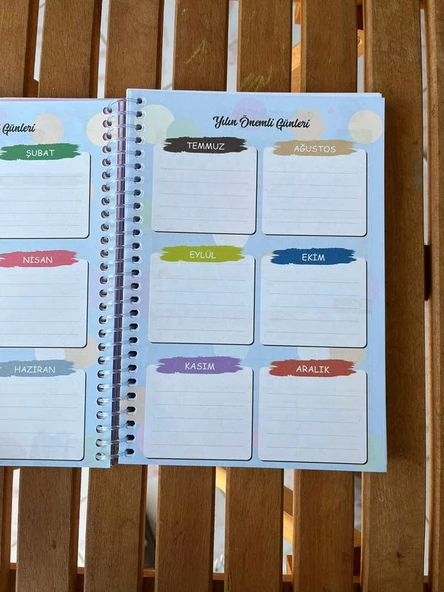 Günleri
ŞUBAT
NİSAN
HAZİRAN
Yılın Önemli Günleri
TEMMUZ
AĞUSTOS
EYLÜL
EKİM
KASIM
ARALIK